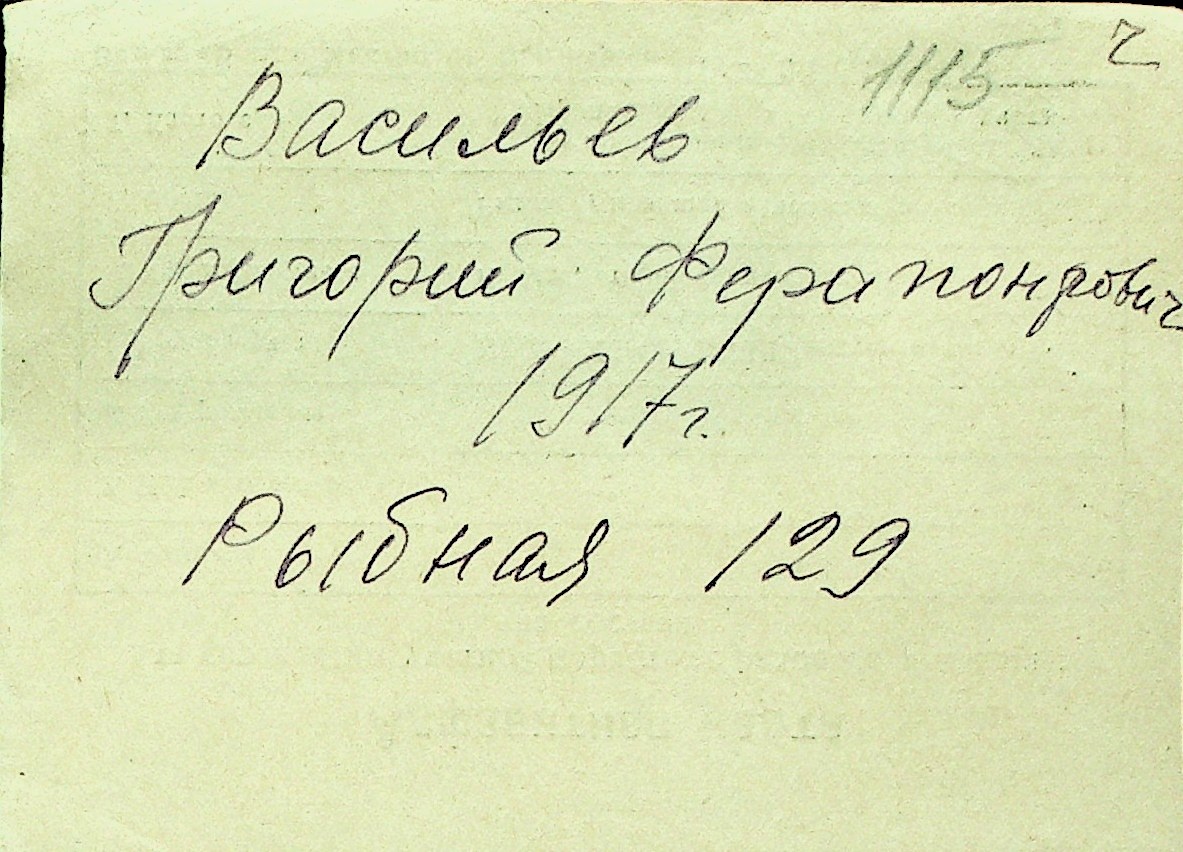 1115 ч
Васильев
Григорий Ферапондович
1917г.
Рыбная 129